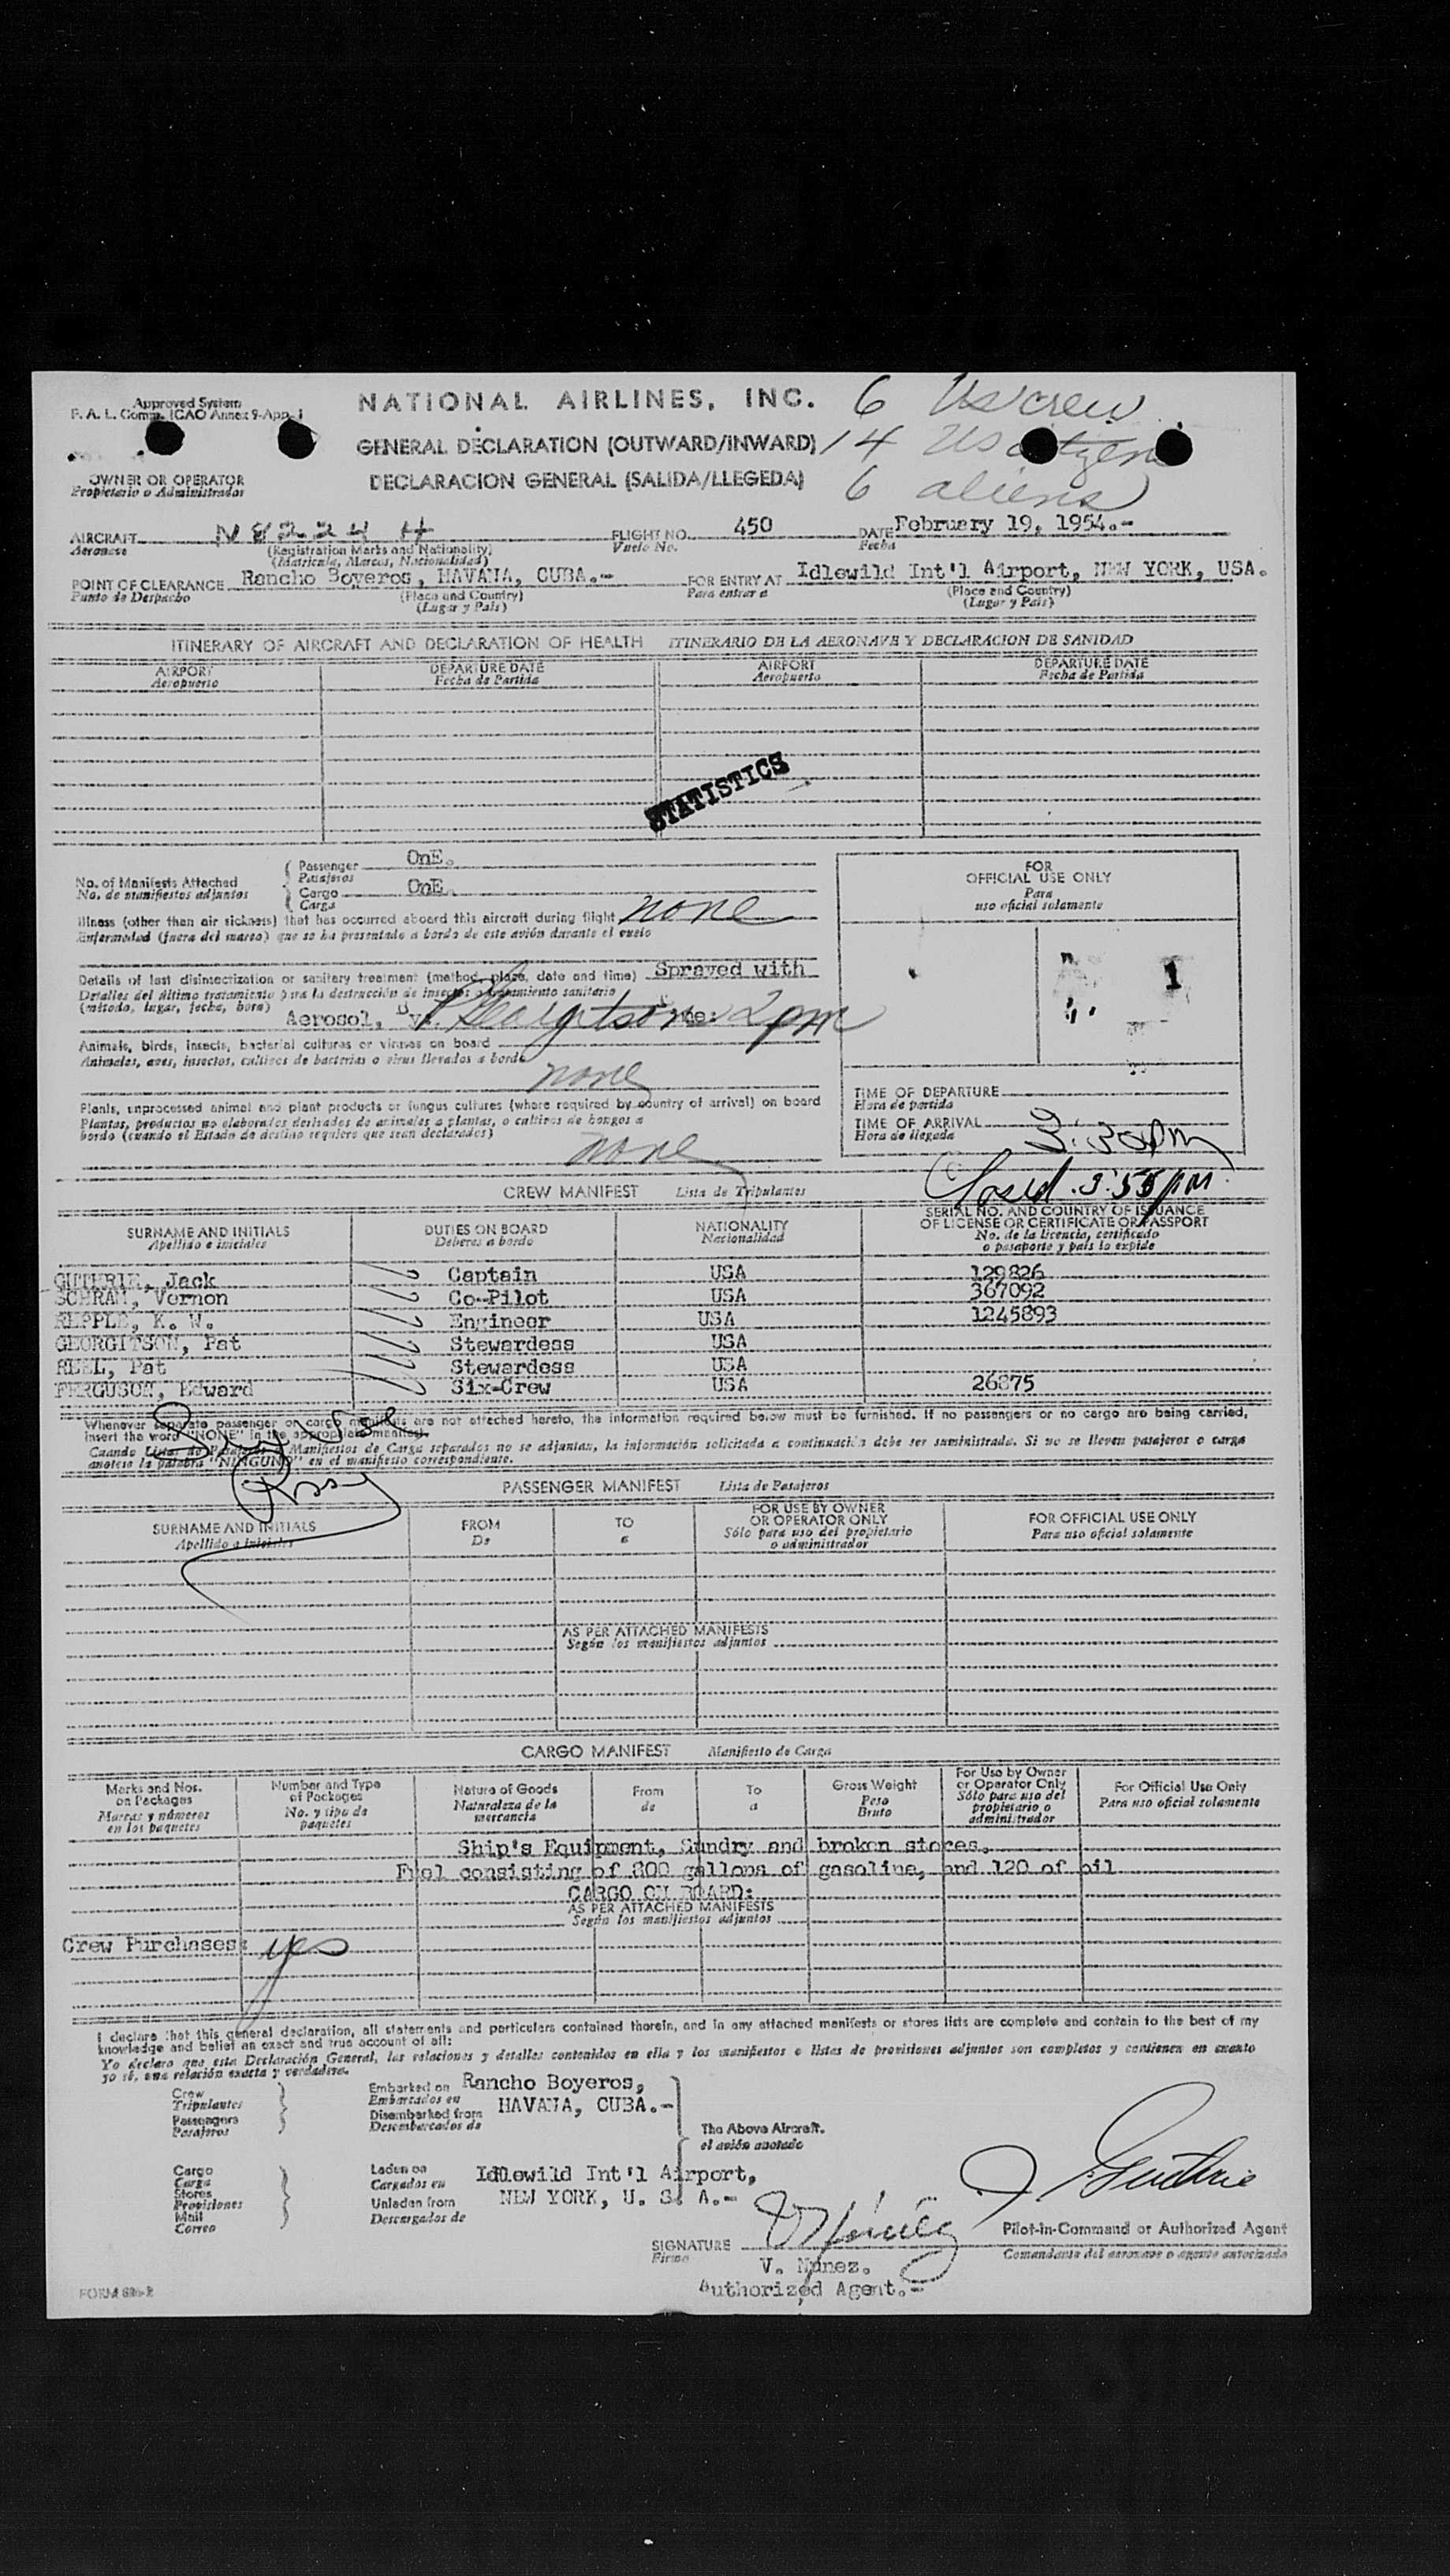 Approved System
F. A. L. Comm. ICAO Annex 9-App. 1
NATIONAL AIRLINES, INC.
6 US crew
GENERAL DECLARATION (OUTWARD/INWARD)
14 US citizens
DECLARACION GENERAL (SALIDA/LLEGEDA)
6 aliens
OWNER OR OPERATOR
Propietario o Administrador
AIRCRAFT N 8 2 2 4 H FLIGHT NO. 450 DATE February 19, 1954.-
Aeronave (Registration Marks and Nationality) Vuelo No. Fecha
(Matricula, Marcas, Nacionalidad)
POINT OF CLEARANCE Rancho Boyeros, HAVANA, CUBA.- FOR ENTRY AT Idlewild Int'l Airport, NEW YORK, USA.
Punto de Despacho (Place and Country) Para entrar a (Place and Country)
(Lugar y Pais) (Lugar y Pais)
ITINERARY OF AIRCRAFT AND DECLARATION OF HEALTH ITINERARIO DE LA AERONAVE Y DECLARACION DE SANIDAD
AIRPORT DEPARTURE DATE AIRPORT DEPARTURE DATE
Aeropuerto Fecha de Partida Aeropuerto Fecha de Partida
STATISTICS
No. of Manifests Attached
No. de manifiestos adjuntos
Passenger OnE.
Pasajeros
Cargo OnE.
Carga
Illness (other than air sickness) that has occurred aboard this aircraft during flight none
Enfermedad (fuera del mareo) que se ha presentado a bordo de este avión durante el vuelo
Details of last disinsectization or sanitary treatment (method, place, date and time) Sprayed with
Detalles del último tratamiento para la destrucción de insectos o tratamiento sanitario
(método, lugar, fecha, hora) Aerosol, By P. Georgitson 2 pm
Animals, birds, insects, bacterial cultures or viruses on board
Animales, aves, insectos, cultivos de bacterias o virus llevados a bordo
none
Plants, unprocessed animal and plant products or fungus cultures (where required by country of arrival) on board
Plantas, productos no elaborados derivados de animales o plantas, o cultivos de hongos a
bordo (cuando el Estado de destino requiere que sean declarados)
none
FOR
OFFICIAL USE ONLY
Para
uso oficial solamente
1
TIME OF DEPARTURE
Hora de partida
TIME OF ARRIVAL 3:30 pm
Hora de llegada
Closed 3:55 pm
CREW MANIFEST Lista de Tripulantes
SURNAME AND INITIALS DUTIES ON BOARD NATIONALITY SERIAL NO. AND COUNTRY OF ISSUANCE
OF LICENSE OR CERTIFICATE OR PASSPORT
Apellido e iniciales Deberes a bordo Nacionalidad No. de la licencia, certificado
o pasaporte y pais lo expide
GUTHRIE, Jack Captain USA 129826
SCHRAM, Vernon Co-Pilot USA 367092
REPPLE, K. W. Engineer USA 1245893
GEORGITSON, Pat Stewardess USA
Pat Stewardess USA
FERGUSON, Edward Six-Crew USA 26875
Whenever separate passenger or cargo manifests are not attached hereto, the information required below must be furnished. If no passengers or no cargo are being carried,
insert the word "NONE" in the appropriate manifest.
Cuando Listas de Pasajeros o Manifiestos de Carga separados no se adjuntan, la información solicitada a continuación debe ser suministrada. Si no se lleven pasajeros o carga
anotese la palabra "NINGUNO" en el manifiesto correspondiente.
PASSENGER MANIFEST Lista de Pasajeros
SURNAME AND INITIALS FROM TO FOR USE BY OWNER
OR OPERATOR ONLY FOR OFFICIAL USE ONLY
Apellido e iniciales De a Sólo para uso del propietario
o administrador Para uso oficial solamente
AS PER ATTACHED MANIFESTS
Según los manifiestos adjuntos
CARGO MANIFEST Manifiesto de Carga
Marks and Nos.
on Packages
Marcas y números
en los paquetes
Number and Type
of Packages
No. y tipo de
paquetes
Nature of Goods
Naturaleza de la
mercancia
From
de
To
a
Gross Weight
Peso
Bruto
For Use by Owner
or Operator Only
Sólo para uso del
propietario o
administrador
For Official Use Only
Para uso oficial solamente
Ship's Equipment, Sundry and broken stores,
Fuel consisting of 800 gallons of gasoline, and 120 of oil
CARGO ON BOARD:
AS PER ATTACHED MANIFESTS
Según los manifiestos adjuntos
Crew Purchases: yes
I declare that this general declaration, all statements and particulars contained therein, and in any attached manifests or stores lists are complete and contain to the best of my
knowledge and belief an exact and true account of all:
Yo declaro que esta Declaración General, las relaciones y detalles contenidos en ella y los manifiestos o listas de provisiones adjuntos son completos y contienen en cuanto
yo sé, una relación exacta y verdadera.
Crew
Tripulantes
Passengers
Pasajeros
Embarked on Rancho Boyeros,
Embarcados en
Disembarked from HAVANA, CUBA.-
Desembarcados de
The Above Aircraft.
el avión anotado
Cargo
Carga
Stores
Provisiones
Mail
Correo
Laden on Idlewild Int'l Airport,
Cargados en
Unladen from NEW YORK, U. S. A.-
Descargados de
J. Guthrie
Pilot-in-Command or Authorized Agent
Comandante del aeronave o agente autorizado
SIGNATURE V Núñez
Firma
V. Nunez.
Authorized Agent.-
FORM